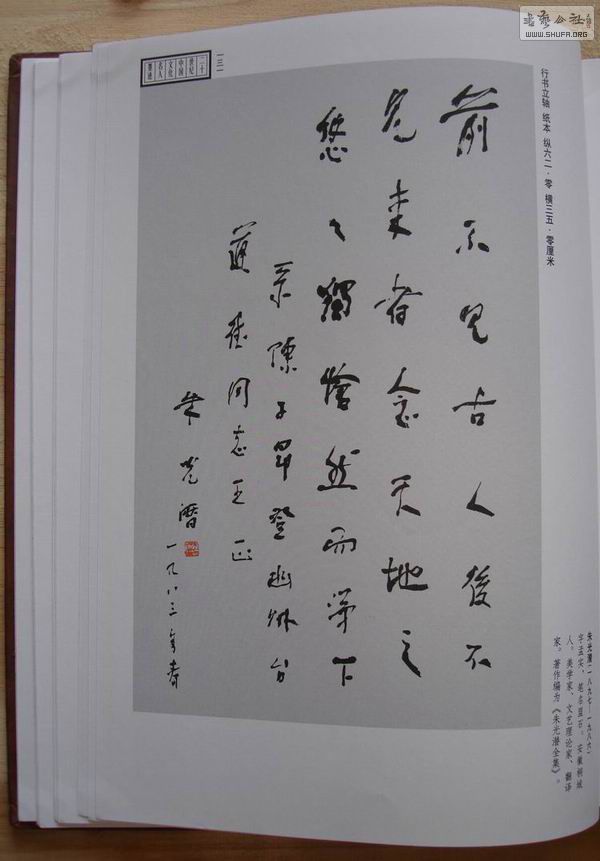 書法公社
WWW.SHUFA.ORG
行书立轴 纸本 纵六二·零 横三五·零厘米
前不見古人後不
見来者念天地之
悠々獨愴然而涕下
陳子昂登幽州台
同志正
朱光潜 一九八三年春
一三一
二十
世纪
中国
文化
名人
墨迹
朱光潜(一八九七—一九八六)
字孟实，笔名盟石。安徽桐城
人。美学家、文艺理论家、翻译
家。著作编为《朱光潜全集》。